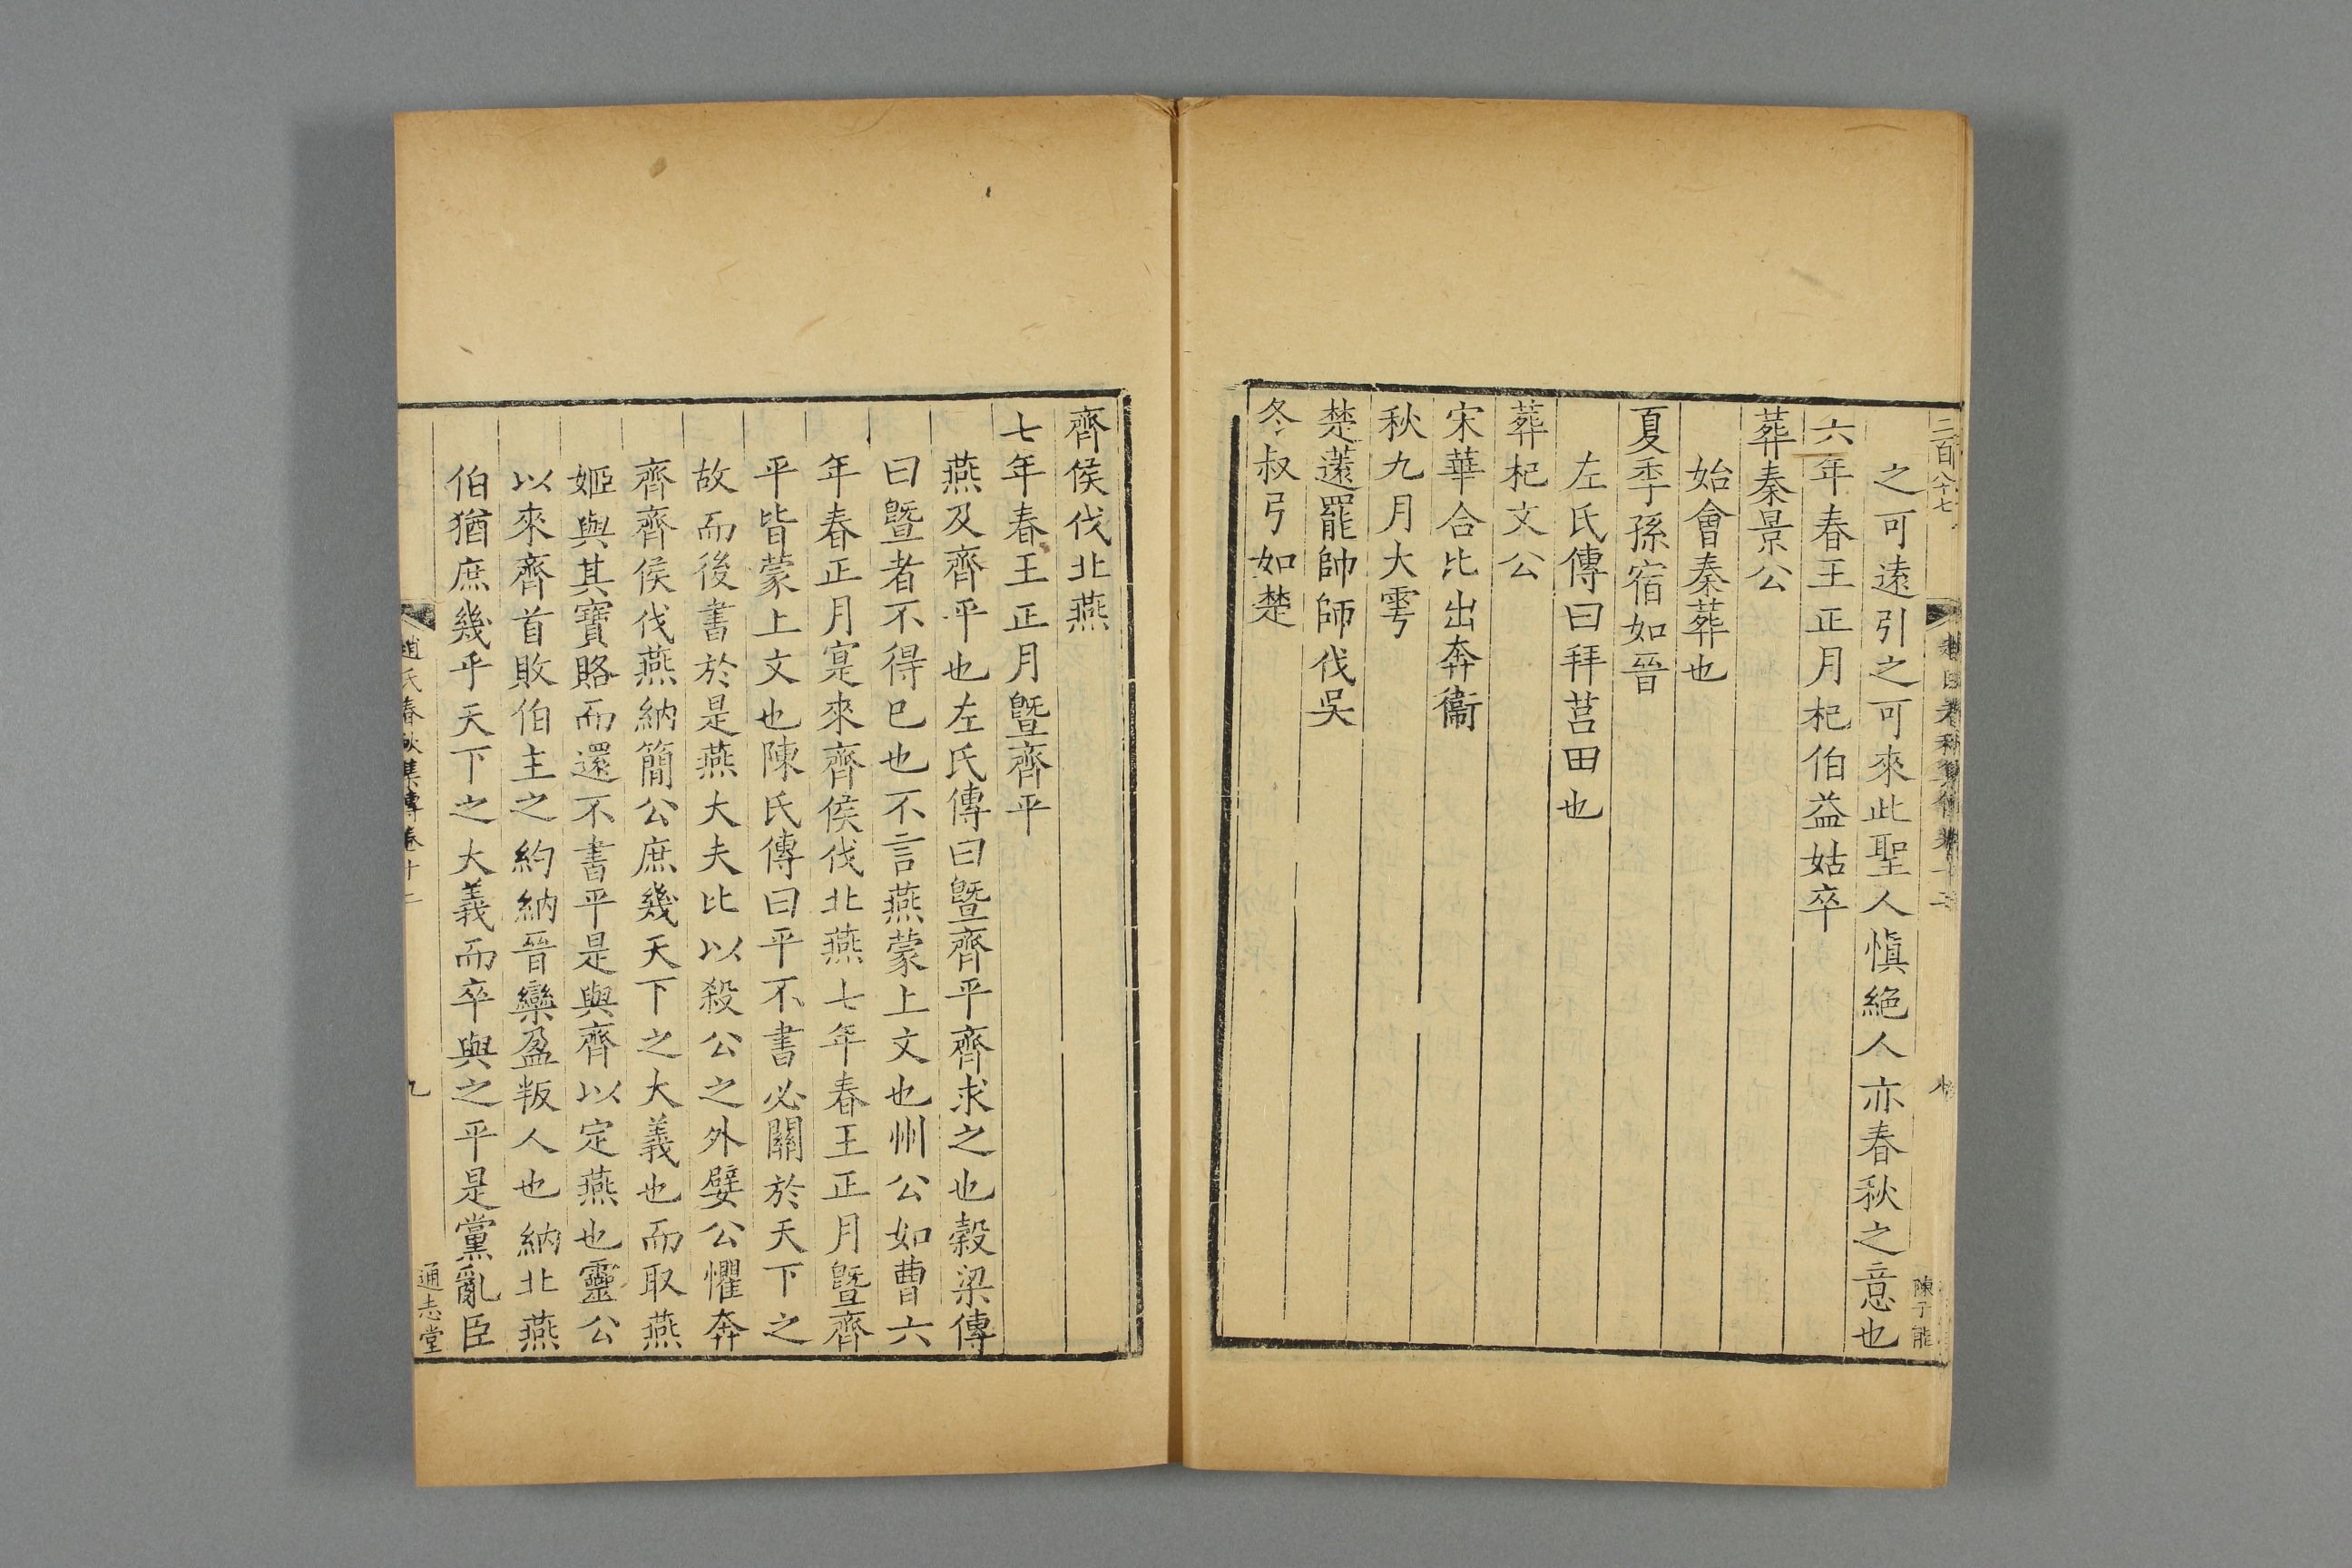 二百八十七
陳子能
之可遠引之可來此聖人愼絕人亦春秋之意也
六年春王正月杞伯益姑卒
葬秦景公
始會秦葬也
夏季孫宿如晉
左氏傳曰拜莒田也
葬杞文公
宋華合比出奔衞
秋九月大雩
楚薳罷帥師伐吳
冬叔弓如楚
齊侯伐北燕
七年春王正月曁齊平
燕及齊平也左氏傳曰曁齊平齊求之也穀梁傳
曰曁者不得已也不言燕蒙上文也州公如曹六
年春正月寔來齊侯伐北燕七年春王正月曁齊
平皆蒙上文也陳氏傳曰平不書必關於天下之
故而後書於是燕大夫比以殺公之外嬖公懼奔
齊齊侯伐燕納簡公庶幾天下之大義也而取燕
姬與其寶賂而還不書平是與齊以定燕也靈公
以來齊首敗伯主之約納晉欒盈叛人也納北燕
伯猶庶幾乎天下之大義而卒與之平是黨亂臣
趙氏春秋集傳卷十二
九
通志堂